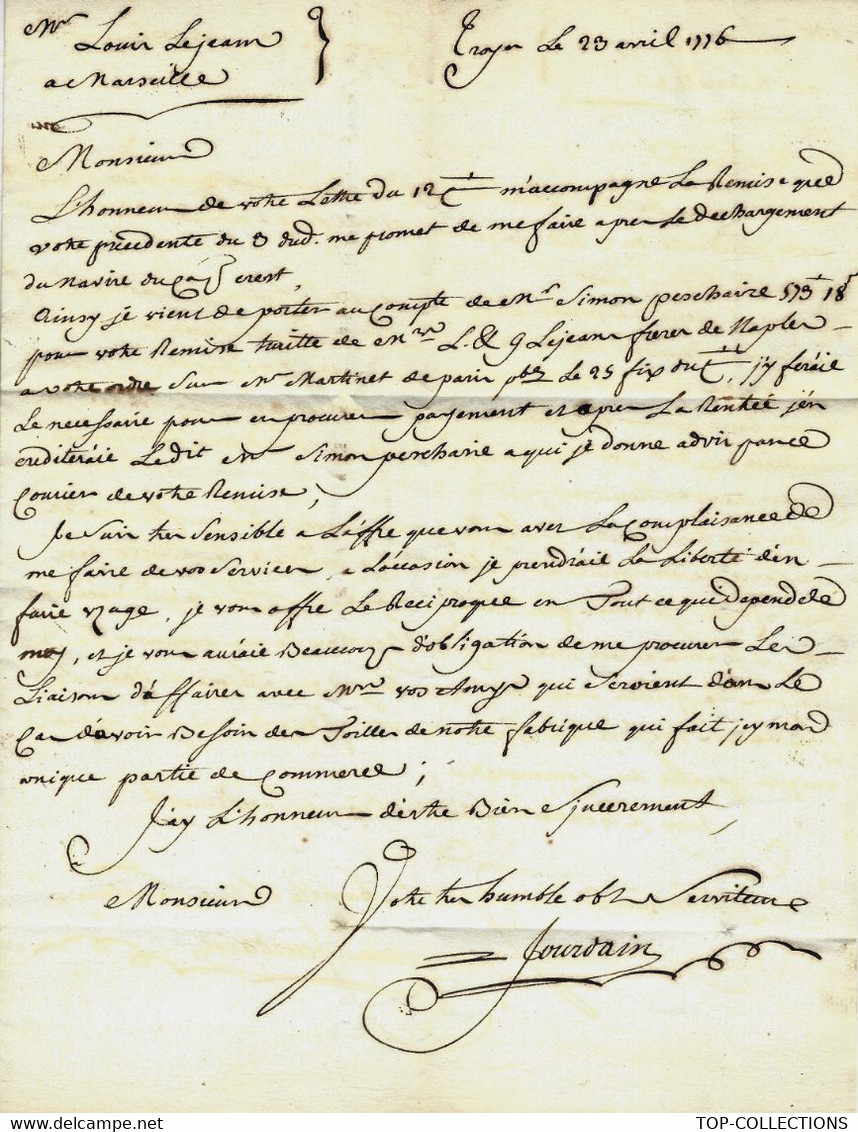 Mr Louis Lejeans
a Marseille
Troyes Le 23 avril 1776
Monsieur
L'honneur de votre Lettre du 12 Ct m'accompagne La Remise que
votre précédente du 3 dud. me promet de me faire apres Le dechargement
du Navire du Cap
Ainsy je vient de porter au Compte de Mr Simon peschaire 573 18
pour votre Remise traitte de Mrs L. & G Lejeans freres de Naples
a votre ordre Sur Mr Martinet de paris Le 25 fix du Ct, j'y feraie
Le necessaire pour en procurer payement et apres La Rentrée j'en
crediteraie Ledit Mr Simon pescharie a qui je donne advis par ce
Courier de votre Remise ;
Je Suis tres Sensible a L'offre que vous aves La Complaisance de
me faire de vos Services, a L'occasion je prendraie La Liberté d'en
faire uzage, je vous offre Le Reciproque en Tout ce qui depend de
moy, et je vous auraie Beaucoup d'obligation de me procurer Les
Liaisons d'affaires avec Mrs vos Amys qui Seroient dans Le
Cas d'avoir Besoin des Toilles de notre fabrique qui fait icy mon
unique partie de Commerce ;
J'ay L'honneur d'estre Bien Sincerement
Monsieur
Votre tres humble obt Serviteur
Jourdain
TOP-COLLECTIONS